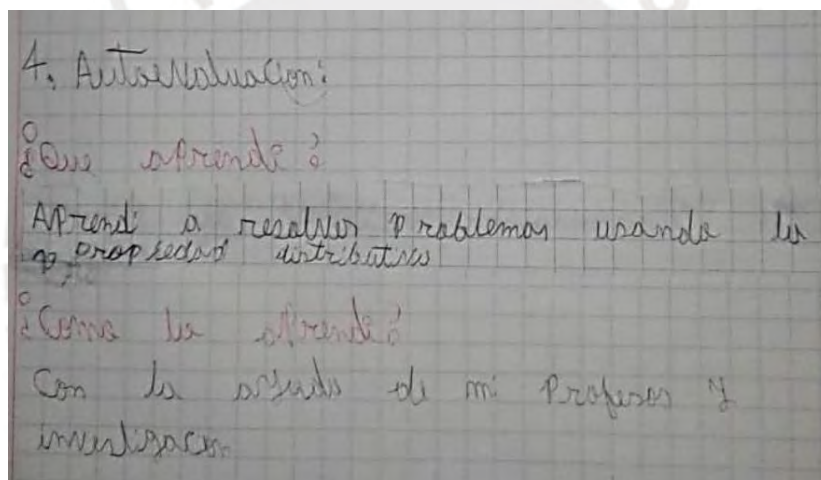 4. Autoevaluacion:
¿Que aprendi?
Aprendi a resolver problemas usando la
propiedad distributiva
¿Como lo aprendi?
Con la ayuda de mi Profesor y
investigacion